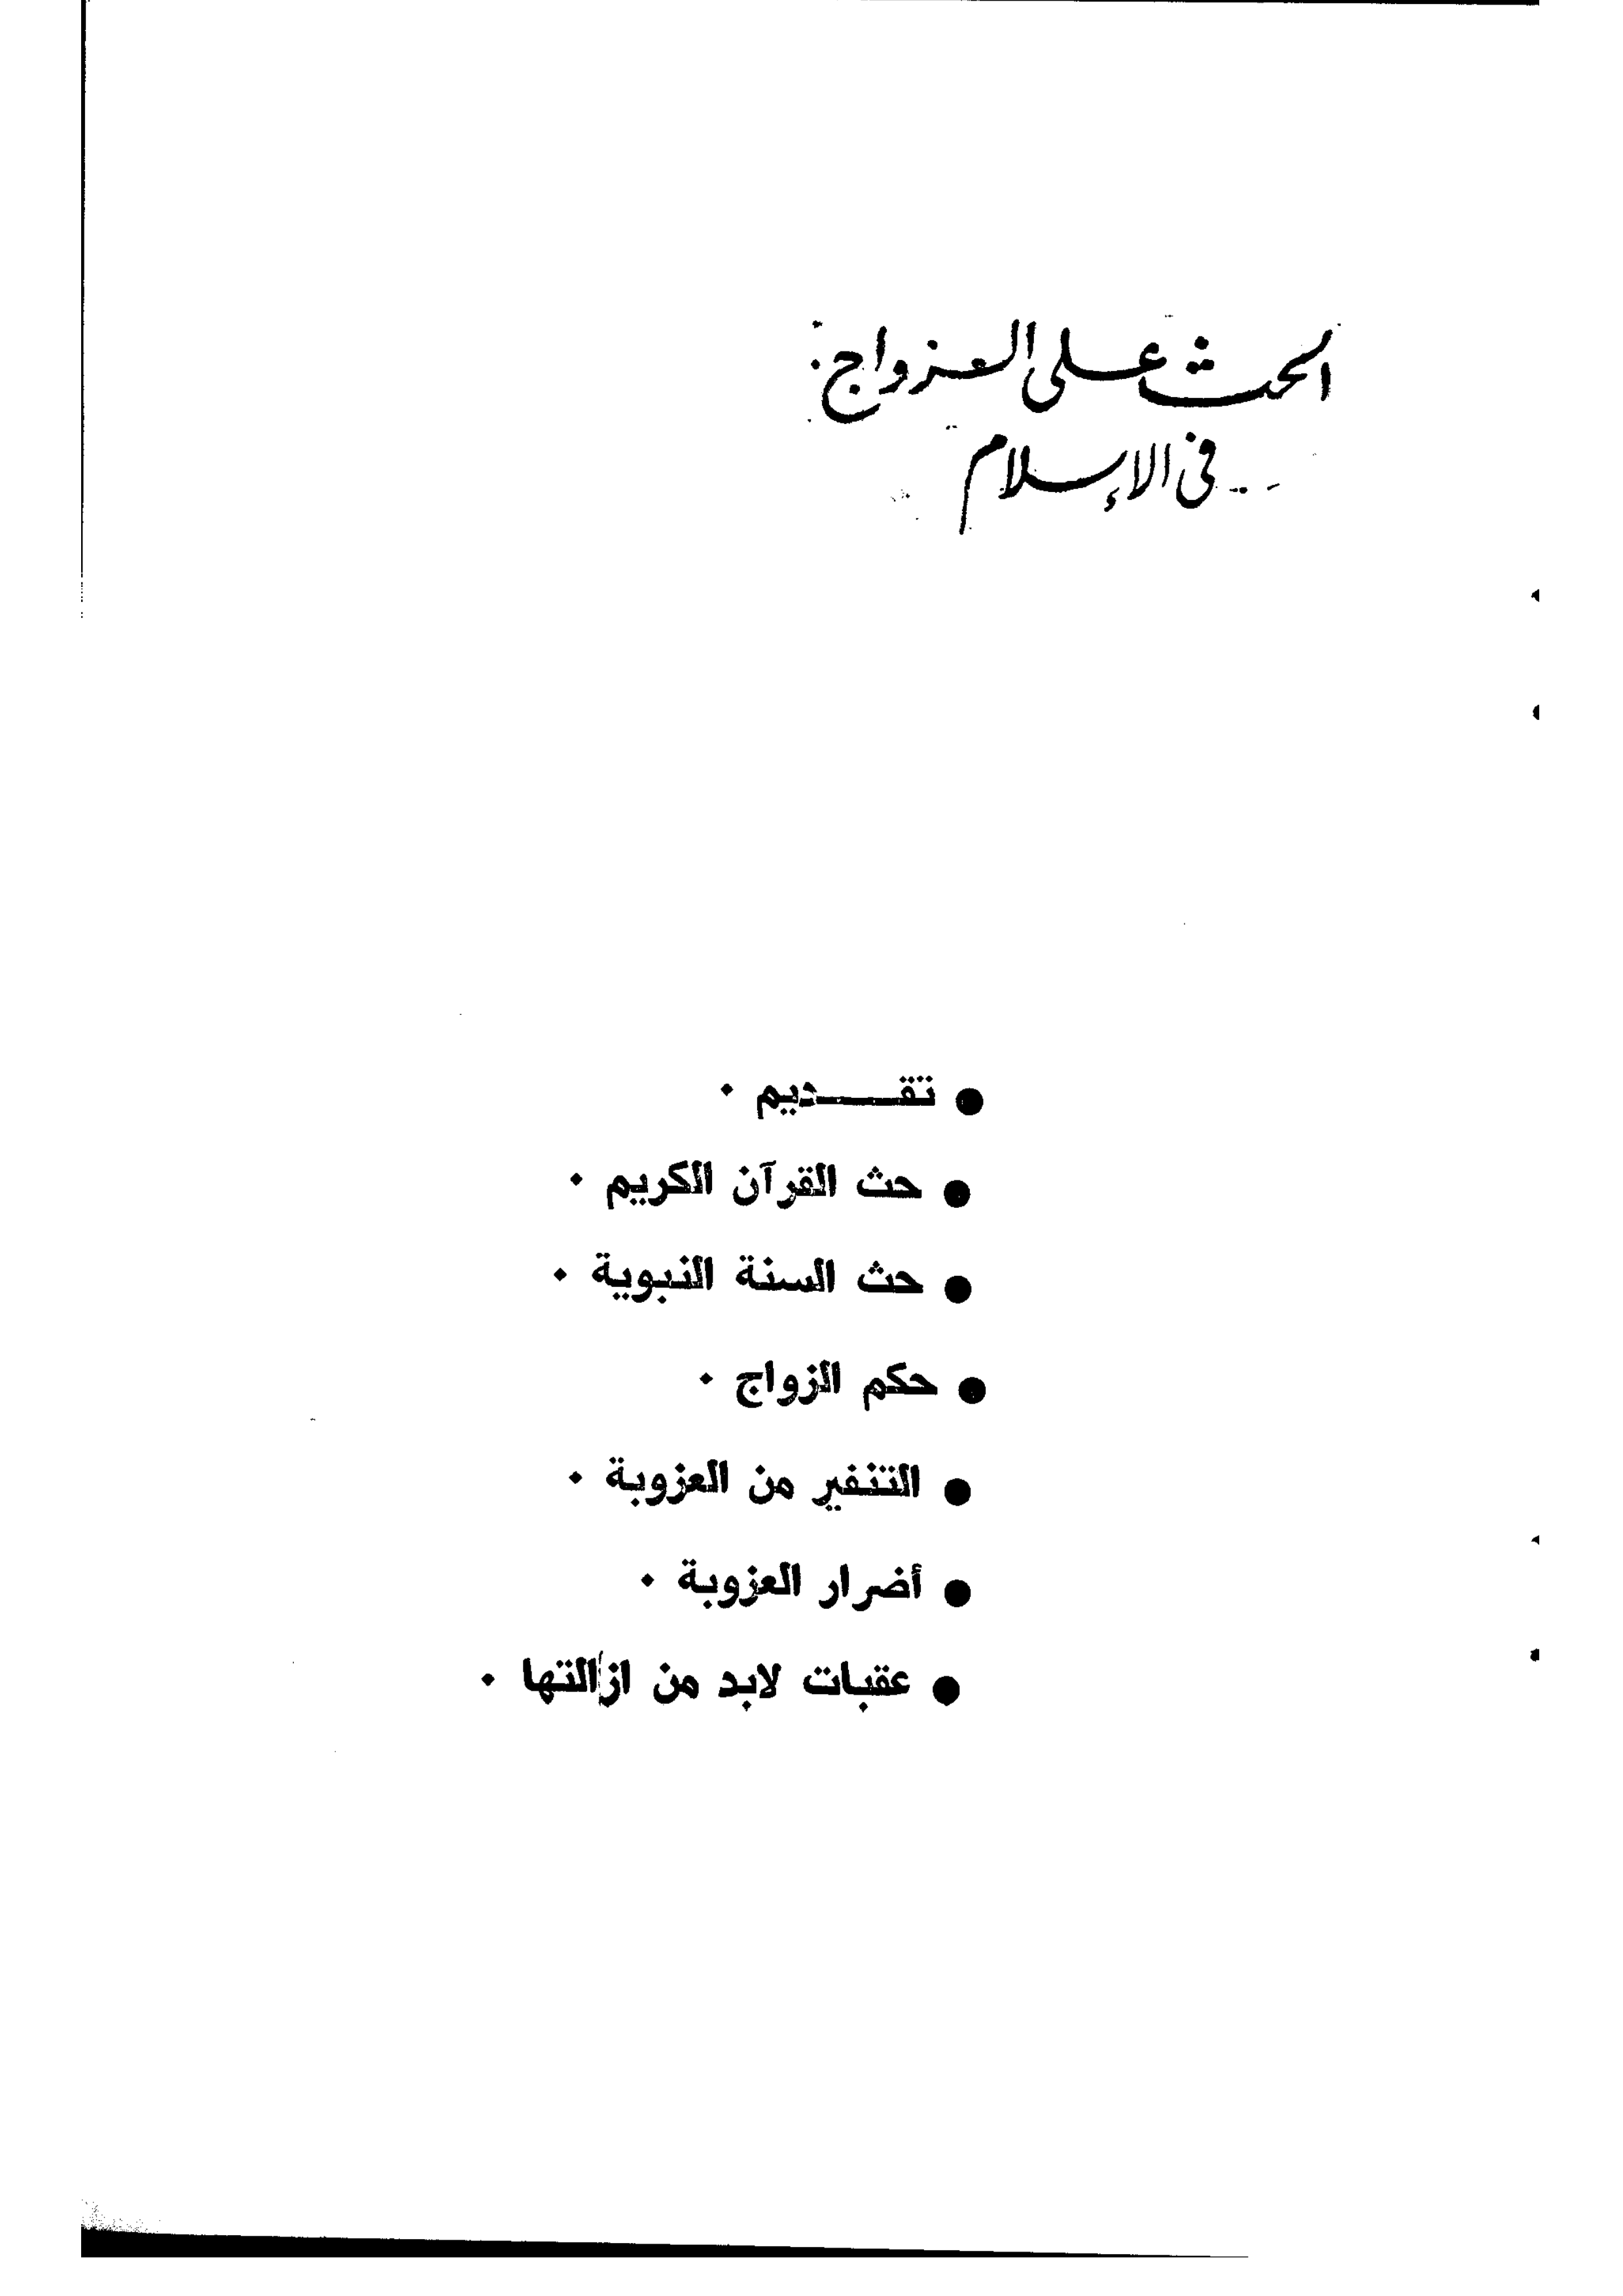 الحث على العزواج .
فى الإسلام
● تقــــديم .
● حث القرآن الكريم .
● حث السنة النبوية .
● حكم الزواج .
● التنفير من العزوبة .
● أضرار العزوبة .
● عقبات لابد من ازالتها .